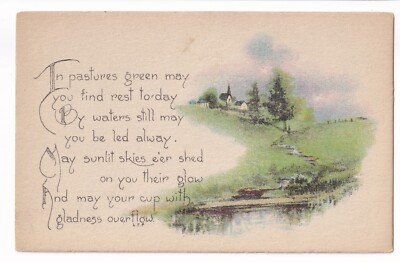 In pastures green may
you find rest to-day
By waters still may
you be led alway.
May sunlit skies e'er shed
on you their glow
And may your cup with
gladness overflow.